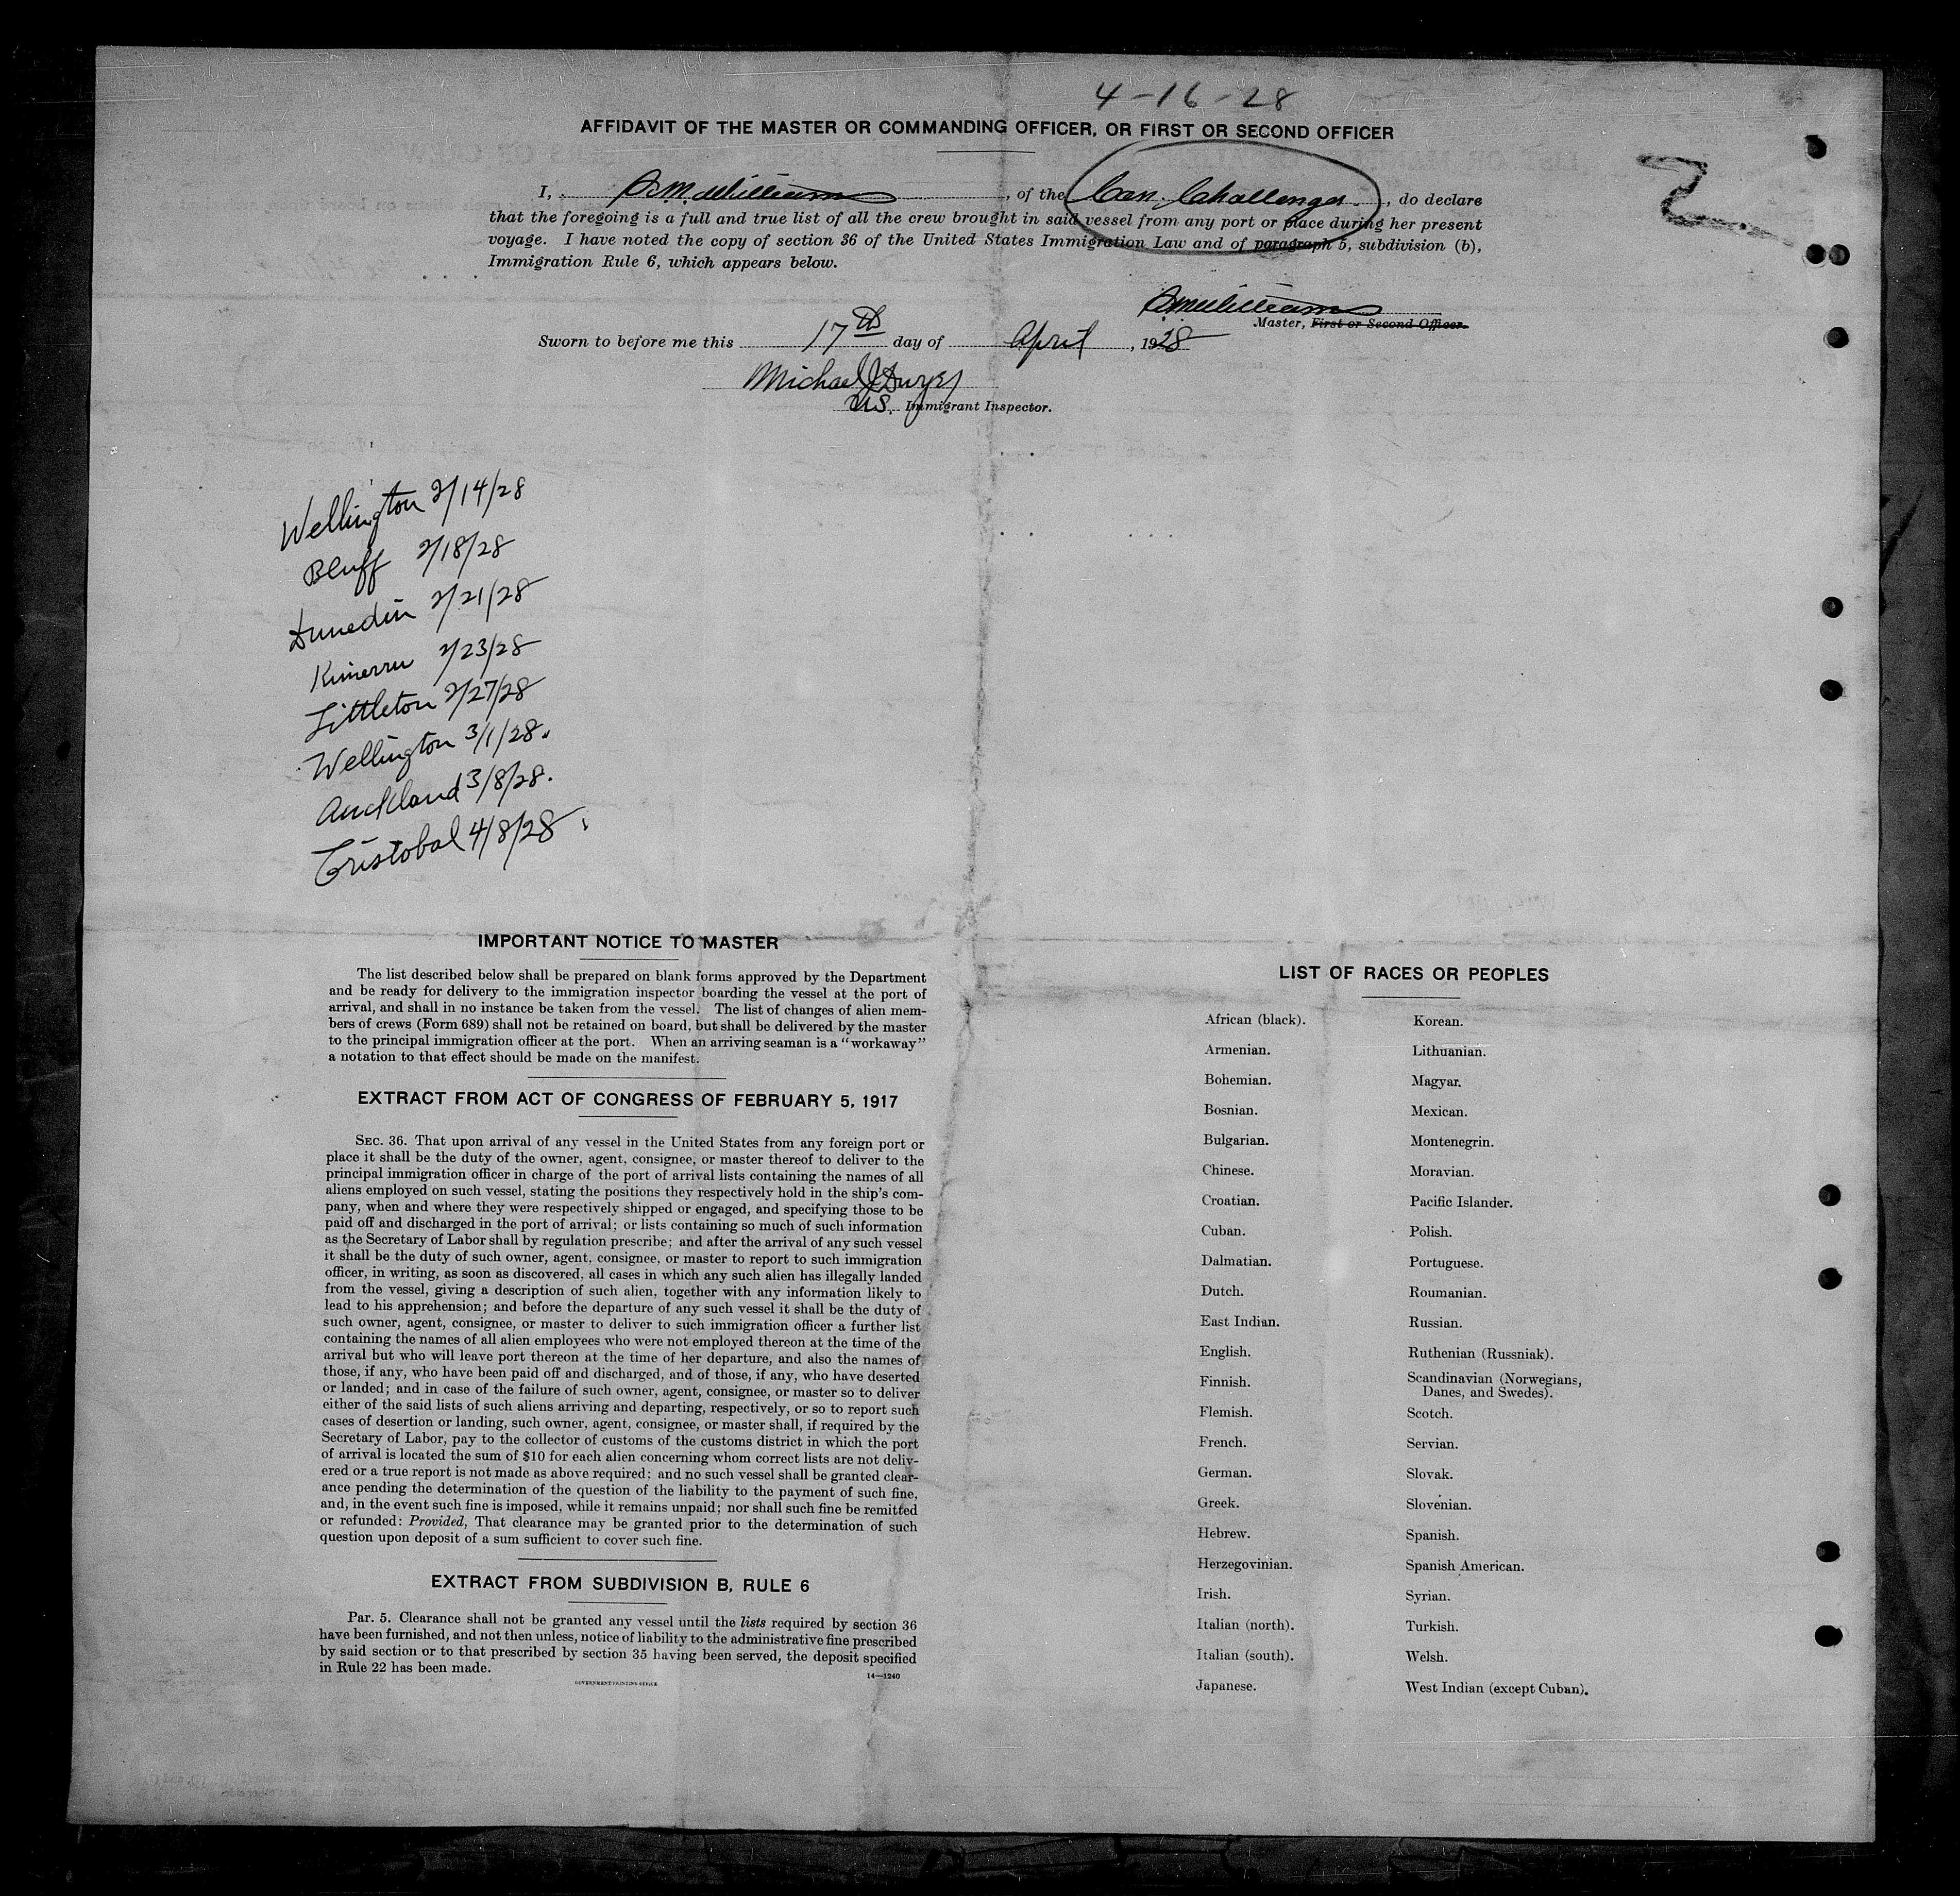 4-16-28
AFFIDAVIT OF THE MASTER OR COMMANDING OFFICER, OR FIRST OR SECOND OFFICER
2
I, , of the Can. Challenger, do declare
that the foregoing is a full and true list of all the crew brought in said vessel from any port or place during her present
voyage. I have noted the copy of section 36 of the United States Immigration Law and of paragraph 5, subdivision (b),
Immigration Rule 6, which appears below.
Master, First or Second Officer.
Sworn to before me this 17th day of April, 1928
Michael J Dwyer
U.S. Immigrant Inspector.
Wellington 2/14/28
Bluff 2/18/28
Dunedin 2/21/28
2/23/28
Littleton 2/27/28
Wellington 3/1/28.
Auckland 3/8/28.
Cristobal 4/8/28
IMPORTANT NOTICE TO MASTER
The list described below shall be prepared on blank forms approved by the Department
and be ready for delivery to the immigration inspector boarding the vessel at the port of
arrival, and shall in no instance be taken from the vessel. The list of changes of alien mem-
bers of crews (Form 689) shall not be retained on board, but shall be delivered by the master
to the principal immigration officer at the port. When an arriving seaman is a "workaway"
a notation to that effect should be made on the manifest.
EXTRACT FROM ACT OF CONGRESS OF FEBRUARY 5, 1917
SEC. 36. That upon arrival of any vessel in the United States from any foreign port or
place it shall be the duty of the owner, agent, consignee, or master thereof to deliver to the
principal immigration officer in charge of the port of arrival lists containing the names of all
aliens employed on such vessel, stating the positions they respectively hold in the ship's com-
pany, when and where they were respectively shipped or engaged, and specifying those to be
paid off and discharged in the port of arrival; or lists containing so much of such information
as the Secretary of Labor shall by regulation prescribe; and after the arrival of any such vessel
it shall be the duty of such owner, agent, consignee, or master to report to such immigration
officer, in writing, as soon as discovered, all cases in which any such alien has illegally landed
from the vessel, giving a description of such alien, together with any information likely to
lead to his apprehension; and before the departure of any such vessel it shall be the duty of
such owner, agent, consignee, or master to deliver to such immigration officer a further list
containing the names of all alien employees who were not employed thereon at the time of the
arrival but who will leave port thereon at the time of her departure, and also the names of
those, if any, who have been paid off and discharged, and of those, if any, who have deserted
or landed; and in case of the failure of such owner, agent, consignee, or master so to deliver
either of the said lists of such aliens arriving and departing, respectively, or so to report such
cases of desertion or landing, such owner, agent, consignee, or master shall, if required by the
Secretary of Labor, pay to the collector of customs of the customs district in which the port
of arrival is located the sum of $10 for each alien concerning whom correct lists are not deliv-
ered or a true report is not made as above required; and no such vessel shall be granted clear-
ance pending the determination of the question of the liability to the payment of such fine,
and, in the event such fine is imposed, while it remains unpaid; nor shall such fine be remitted
or refunded: Provided, That clearance may be granted prior to the determination of such
question upon deposit of a sum sufficient to cover such fine.
EXTRACT FROM SUBDIVISION B, RULE 6
Par. 5. Clearance shall not be granted any vessel until the lists required by section 36
have been furnished, and not then unless, notice of liability to the administrative fine prescribed
by said section or to that prescribed by section 35 having been served, the deposit specified
in Rule 22 has been made.
14—1240
GOVERNMENT PRINTING OFFICE
LIST OF RACES OR PEOPLES
African (black).
Armenian.
Bohemian.
Bosnian.
Bulgarian.
Chinese.
Croatian.
Cuban.
Dalmatian.
Dutch.
East Indian.
English.
Finnish.
Flemish.
French.
German.
Greek.
Hebrew.
Herzegovinian.
Irish.
Italian (north).
Italian (south).
Japanese.
Korean.
Lithuanian.
Magyar.
Mexican.
Montenegrin.
Moravian.
Pacific Islander.
Polish.
Portuguese.
Roumanian.
Russian.
Ruthenian (Russniak).
Scandinavian (Norwegians,
Danes, and Swedes).
Scotch.
Servian.
Slovak.
Slovenian.
Spanish.
Spanish American.
Syrian.
Turkish.
Welsh.
West Indian (except Cuban).